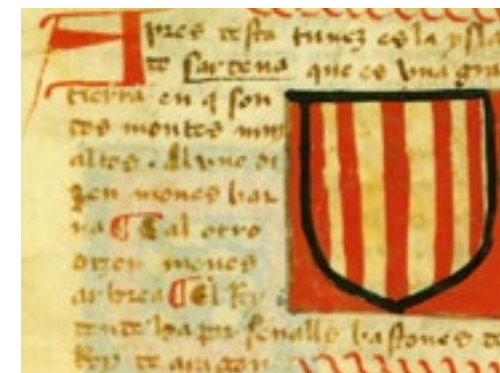 Apres desta tunez es la ysla
de Sardena que es una gra
tierra en q son
dos montes muy
altos. Al uno di
zen montes bar
na E al otro
dizen montes
arbrea El Rey
dende ha por senalls bastones de
Rey de aragon